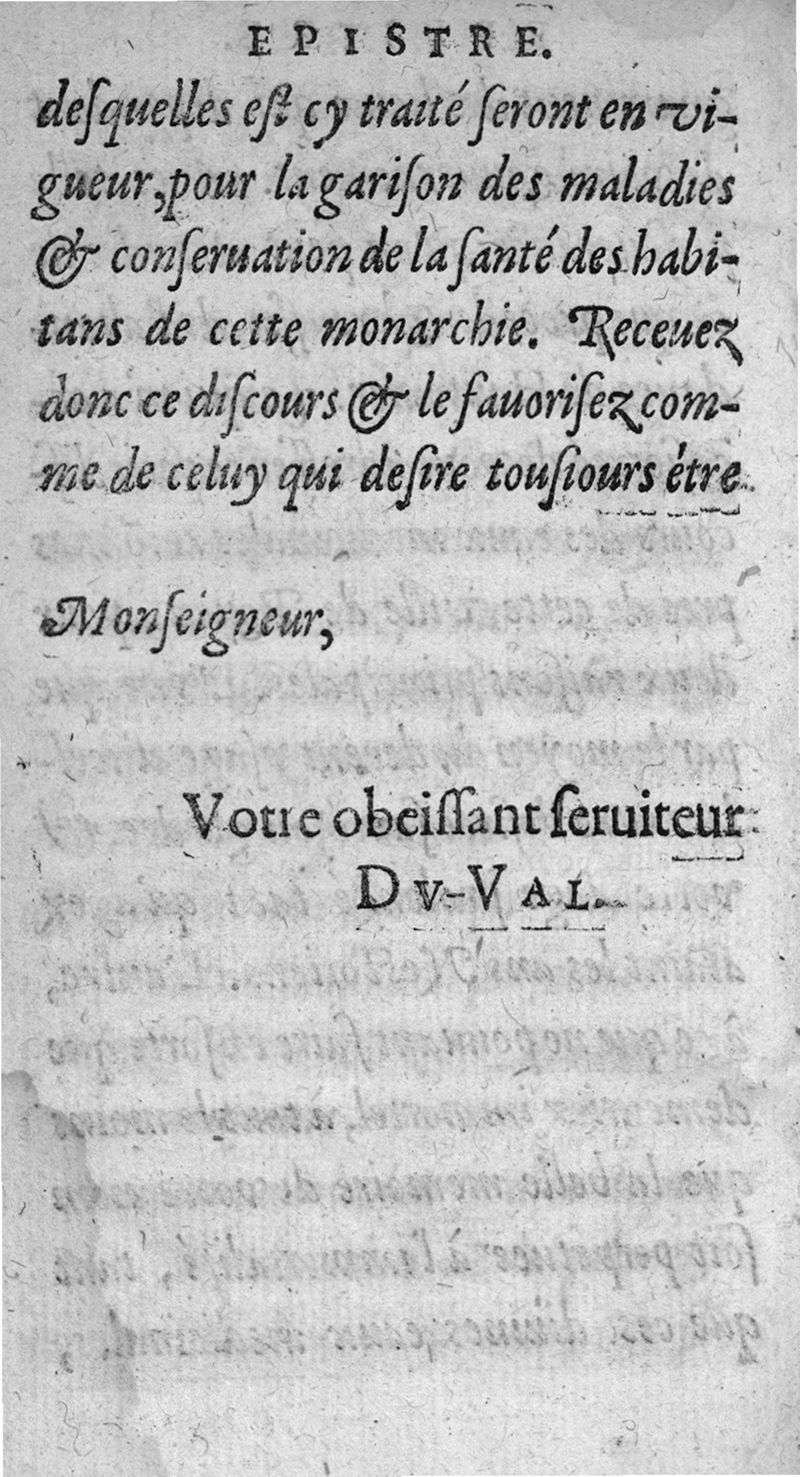 EPISTRE.
deſquelles eſt cy traité ſeront en vi-
gueur, pour la gariſon des maladies
& conſeruation de la ſanté des habi-
tans de cette monarchie. Receuez
donc ce diſcours & le fauoriſez com-
me de celuy qui deſire touſiours étre
Monſeigneur,
Votre obeiſſant ſeruiteur
DV-VAL.